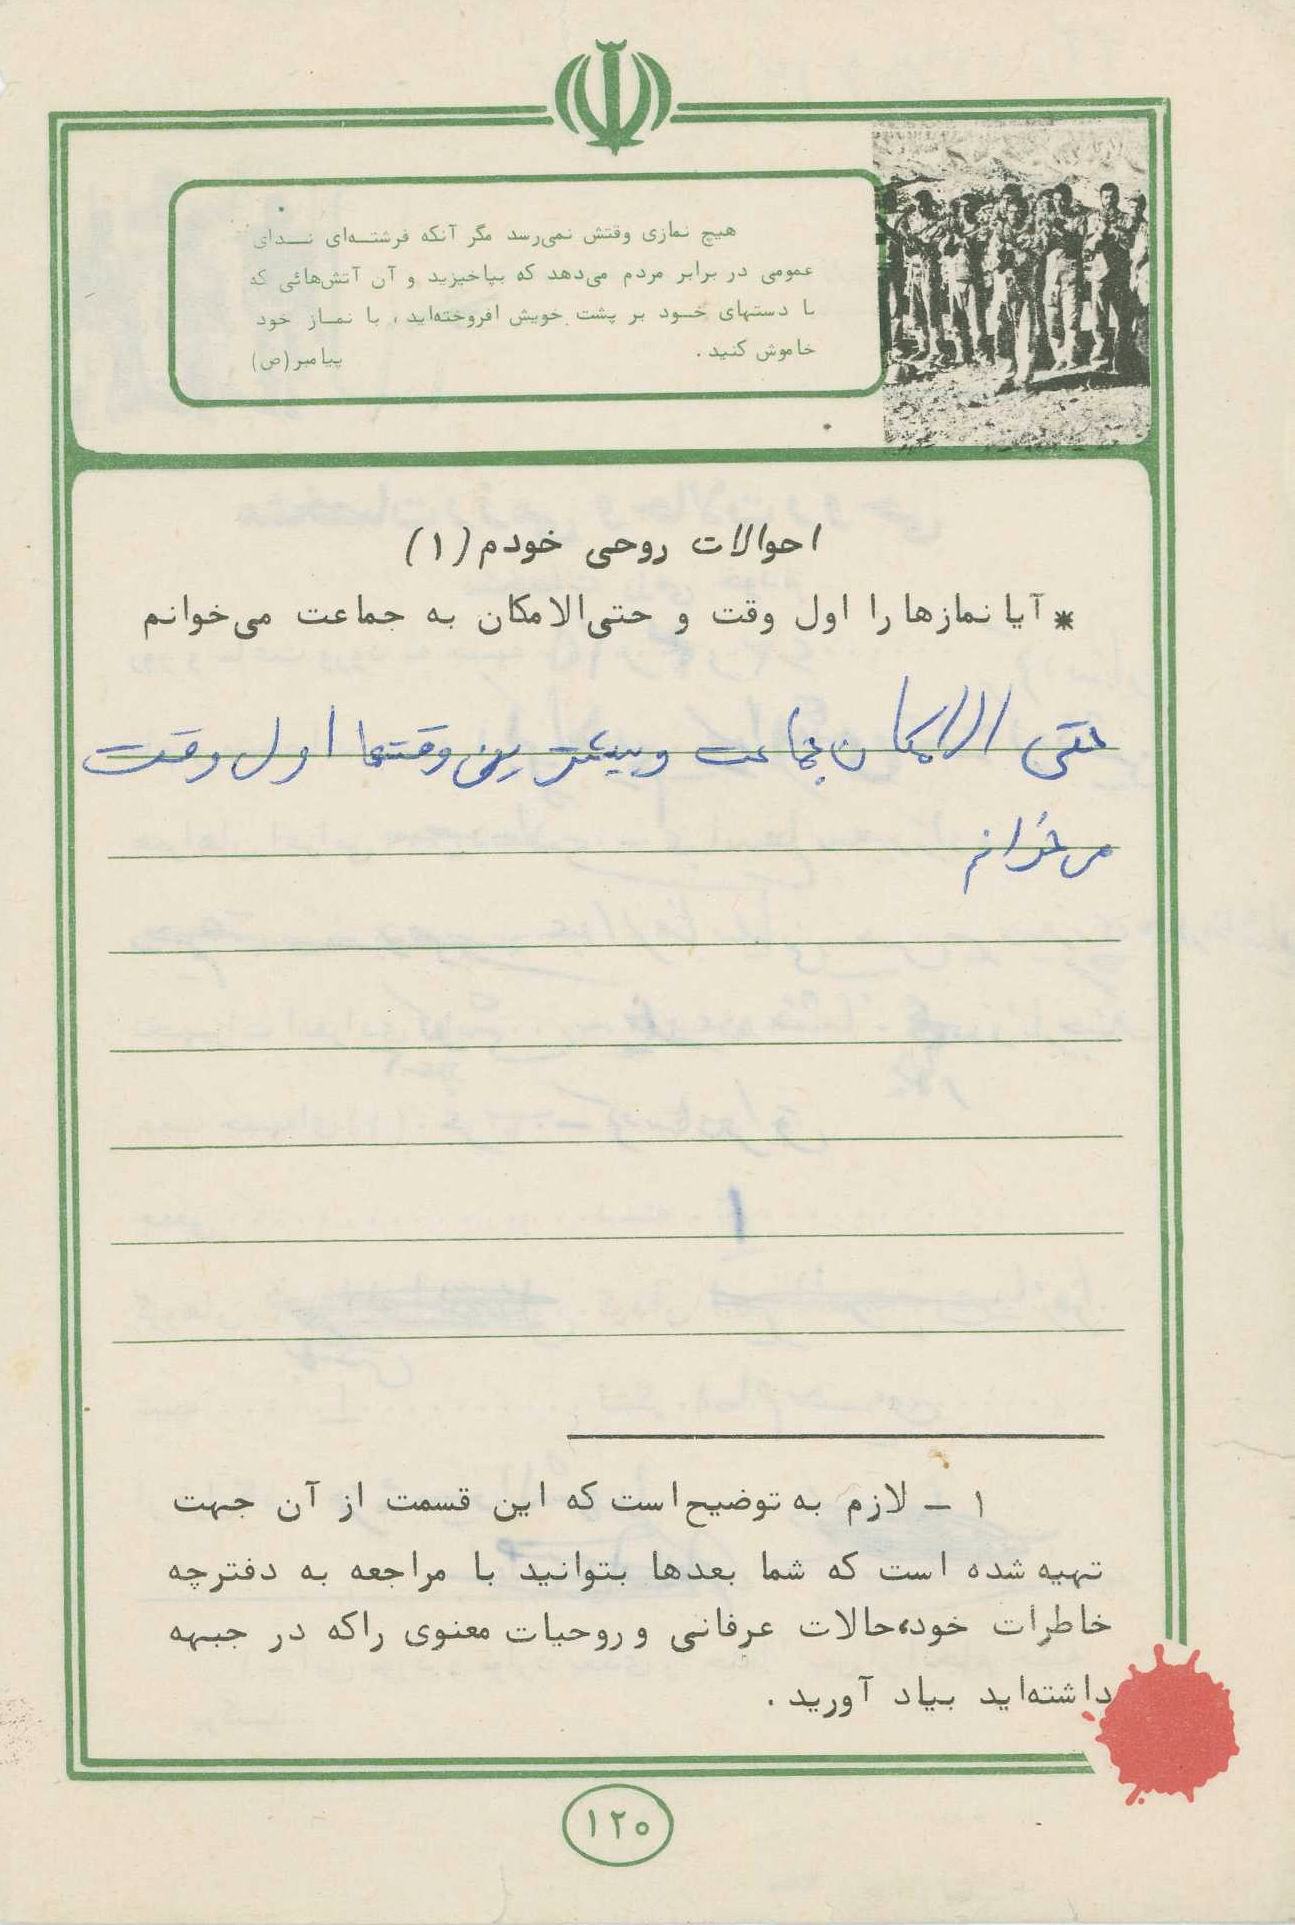 هیچ نمازی وقتش نمی‌رسد مگر آنکه فرشته‌ای ندای
عمومی در برابر مردم می‌دهد که بپاخیزید و آن آتش‌هائی که
با دستهای خود بر پشت خویش افروخته‌اید، با نماز خود
خاموش کنید. پیامبر(ص)
احوالات روحی خودم (۱)
* آیا نمازها را اول وقت و حتی‌الامکان به جماعت می‌خوانم
حتی الامکان بجماعت و بیشترین وقتها اول وقت
می خوانم
۱ - لازم به توضیح است که این قسمت از آن جهت
تهیه شده است که شما بعدها بتوانید با مراجعه به دفترچه
خاطرات خود، حالات عرفانی و روحیات معنوی را که در جبهه
داشته‌اید بیاد آورید.
۱۲۰